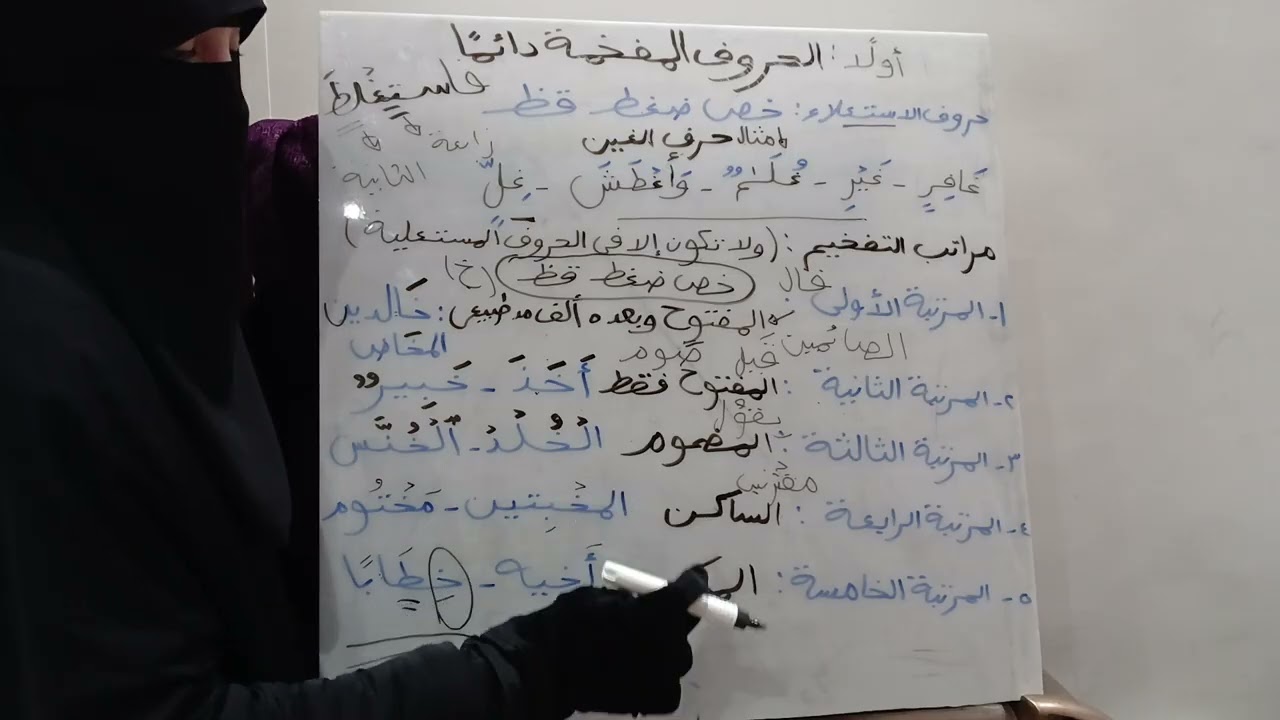 أولًا: الحروف المفخمة دائمًا
حروف الاستعلاء: خص ضغط قظ فاستغلظ
أمثلة حرف الغين رابعة
غَافِرِ - غَيْرِ - غُلَـٰمٌ - وَأَغْطَشَ - غِلٍّ الثانية
مراتب التفخيم: (ولا تكون إلا فى الحروف المستعلية)
قال خص ضغط قظ (خ)
١- المرتبة الأولى المفتوح وبعده ألف مد طبيعى: خَالدين
الصائمين قَبل صَوم المخَاض
٢- المرتبة الثانية: المفتوح فقط أَخَذَ - خَبير
يقُول
٣- المرتبة الثالثة: المضموم الْخُلْدِ - ٱلْخُنَّس
مقْرنين
٤- المرتبة الرابعة: الساكن المخْبِتين - مَخْتُوم
٥- المرتبة الخامسة: أَخيه - خِطَابًا